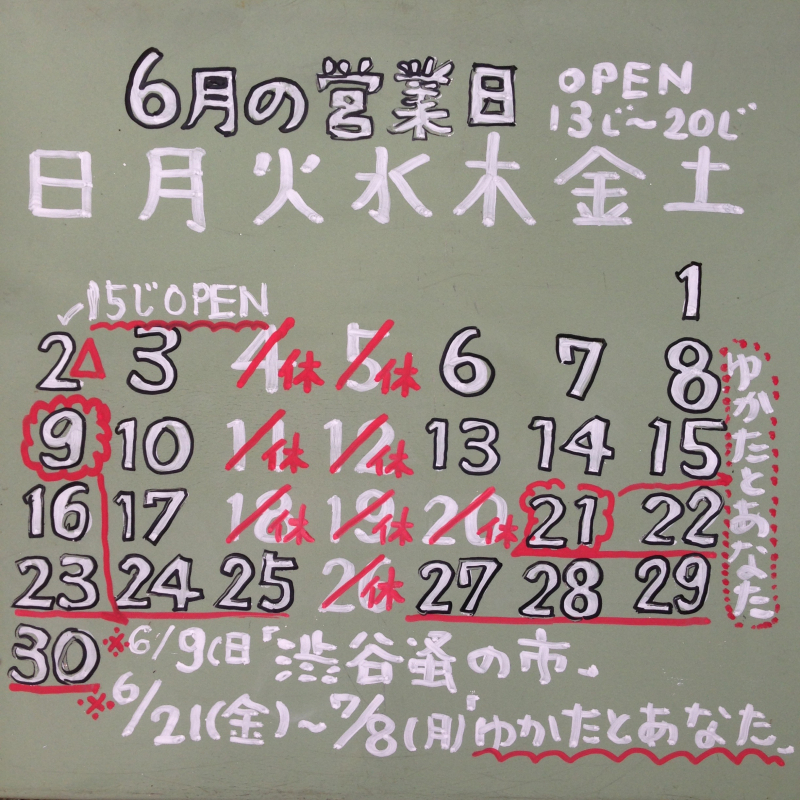 6月の営業日
OPEN
13じ〜20じ
日 月 火 水 木 金 土
1
15じOPEN
2 3 4休 5休 6 7 8
9 10 11休 12休 13 14 15
16 17 18休 19休 20休 21 22
23 24 25 26休 27 28 29
30
ゆかたとあなた
※6/9(日「渋谷蚤の市」
※6/21(金)〜7/8(月)「ゆかたとあなた」